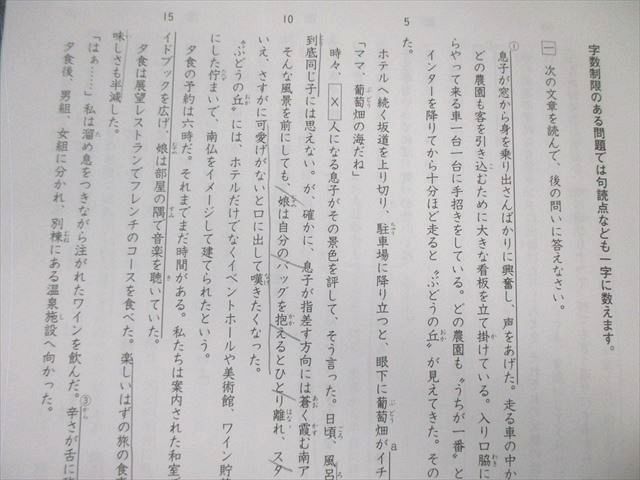 字数制限のある問題では句読点なども一字に数えます。
一 次の文章を読んで、後の問いに答えなさい。
①息子が窓から身を乗り出さんばかりに興奮し、声をあげた。走る車の中か
どの農園も客を引き込むために大きな看板を立て掛けている。入り口脇に
らやって来る車一台一台に手招きをしている。どの農園も〝うちが一番〟と
インターを降りてから十分ほど走ると〝ぶどうの丘〟が見えてきた。その
た。
5
ホテルへ続く坂道を上り切り、駐車場に降り立つと、眼下に葡萄畑がaイチ
「ママ、葡萄畑の海だね」
時々、X人になる息子がその景色を評して、そう言った。日頃、風呂
到底同じ子には思えない。が、確かに、息子が指差す方向には蒼く霞む南ア
10
そんな風景を前にしても、娘は自分のバッグを抱えるとひとり離れ、スタ
いえ、さすがに可愛げがないと口に出して嘆きたくなった。
〝ぶどうの丘〟には、ホテルだけでなくイベントホールや美術館、ワイン貯
にした佇まいで、南仏をイメージして建てられたという。
夕食の予約は六時だ。それまでまだ時間がある。私たちは案内された和室で
イドブックを広げ、娘は部屋の隅で音楽を聴いていた。
15
夕食は展望レストランでフレンチのコースを食べた。楽しいはずの旅の食事
味しさも半減した。
「はぁ……」私は溜め息をつきながら注がれたワインを飲んだ。③辛さが舌に
夕食後、男組、女組に分かれ、別棟にある温泉施設へ向かった。